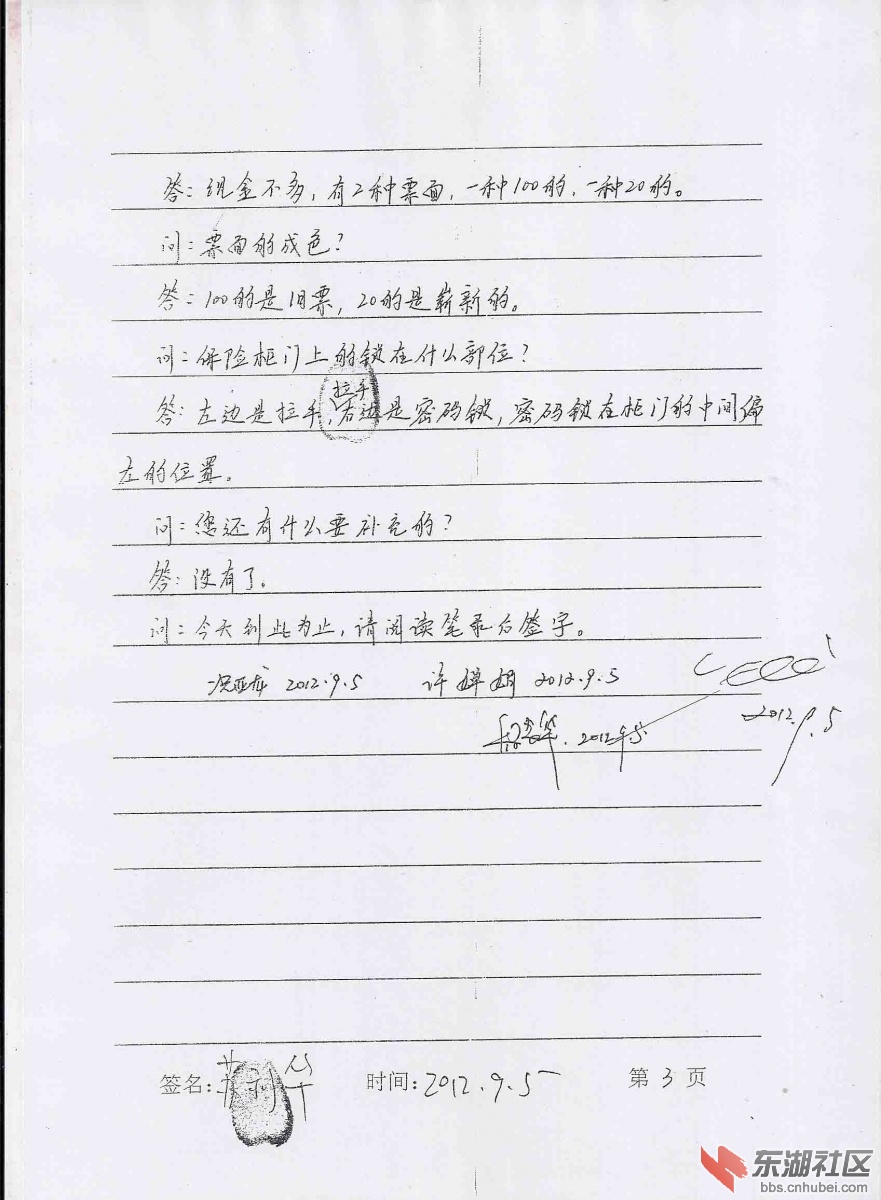 答:现金不多,有2种票面,一种100的,一种20的。
问:票面的成色?
答:100的是旧票,20的是崭新的。
问:保险柜门上的锁在什么部位?
拉手
答:左边是拉手,右边是密码锁,密码锁在柜门的中间偏
左的位置。
问:您还有什么要补充的?
答:没有了。
问:今天到此为止,请阅读笔录后签字。
2012.9.5 许 娟 2012.9.5
2012.9.5
2012.9.5
签名: 时间:2012.9.5 第 3 页
东湖社区
bbs.cnhubei.com